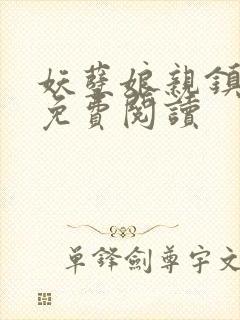 妖孽娘親鎮
免費閱讀
單鋒劍尊宇文